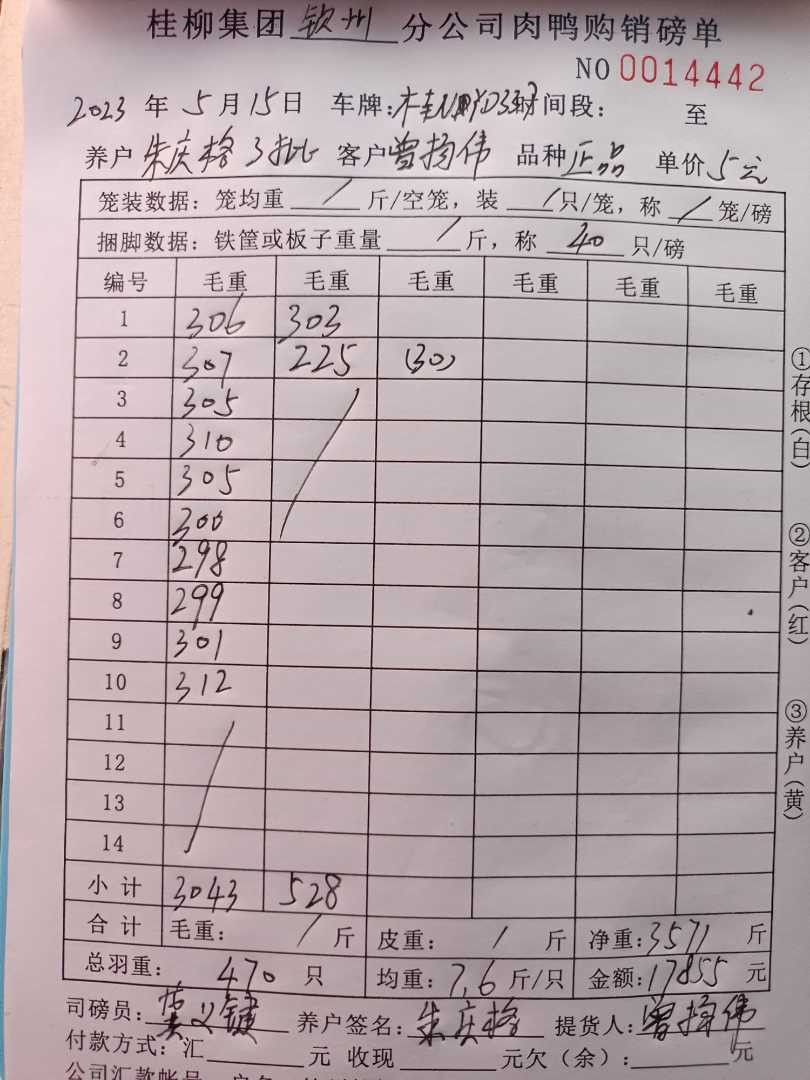 桂柳集团 钦州 分公司肉鸭购销磅单
NO 0014442
2023 年 5 月 15 日 车牌: 时间段: 至
养户 朱庆格 3批 客户 曾扬伟 品种 正品 单价 5元
笼装数据: 笼均重 / 斤/空笼, 装 / 只/笼, 称 / 笼/磅
捆脚数据: 铁筐或板子重量 / 斤, 称 40 只/磅
编号 毛重 毛重 毛重 毛重 毛重 毛重
1 306 303
2 307 225 (30)
3 305
4 310
5 305
6 300
7 298
8 299
9 301
10 312
11
12
13
14
小计 3043 528
合计 毛重: / 斤 皮重: / 斤 净重: 3571 斤
总羽重: 470 只 均重: 7.6 斤/只 金额: 17855 元
司磅员: 黄义健 养户签名: 朱庆格 提货人: 曾扬伟
付款方式: 汇 元 收现 元欠(余): 元
公司汇款帐号
①存根(白)
②客户(红)
③养户(黄)